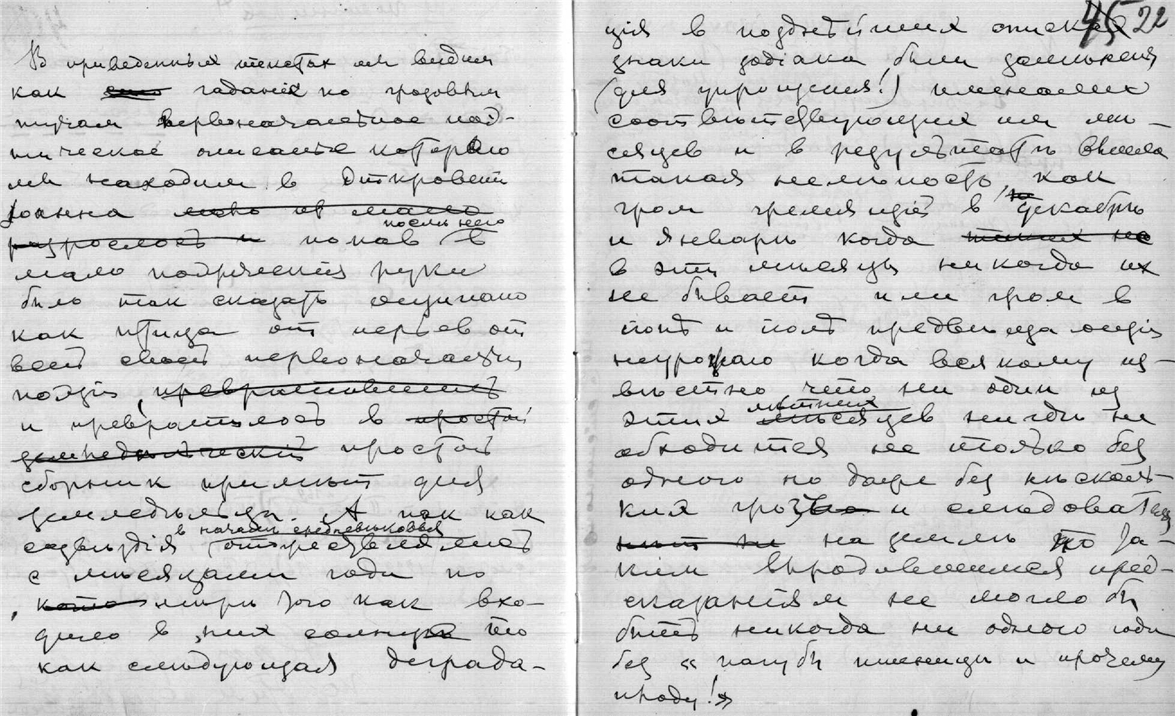 В приведенных текстах мы видим
как гаданіе по грозовым
тучам первоначальное поэ-
тическое описаніе котораго
мы находим в Откровеніи
Іоанна мало по малу
разрослось и попав послѣ него в
мало поэтическія руки
было так сказать ощипано
как птица от перьев от
всей своей первоначальной
поэзіи превратившись
и превратилось в простой
земледѣльческій простой
сборник примѣт для
земледѣльца. А так как
созвѣздія в началѣ средневѣковья отожествлялись
с мѣсяцами года по
мѣрѣ того как вхо-
дило в них солнце то
как слѣдующая деграда-
45 22
ція в позднѣйших списках
знаки зодіака были замѣнены
(для упрощенія!) именами
соотвѣтствующих им мѣ-
сяцев и в результатѣ вышла
такая нелѣпость, как
гром гремящій в декабрѣ
и январѣ когда
в эти мѣсяцы никогда их
не бывает или гром в
іюнѣ и іюлѣ предвѣщающій
неурожаю когда всякому из-
вѣстно что ни один из
этих лѣтних мѣсяцев нигдѣ не
обходится не только без
одного но даже без нѣсколь-
ких гроз и следовательно
на землѣ по та-
ким выродившимся пред-
сказаніям не могло бы
быть никогда ни одного года
без « пагубы пшеницы и прочему
плоду!»